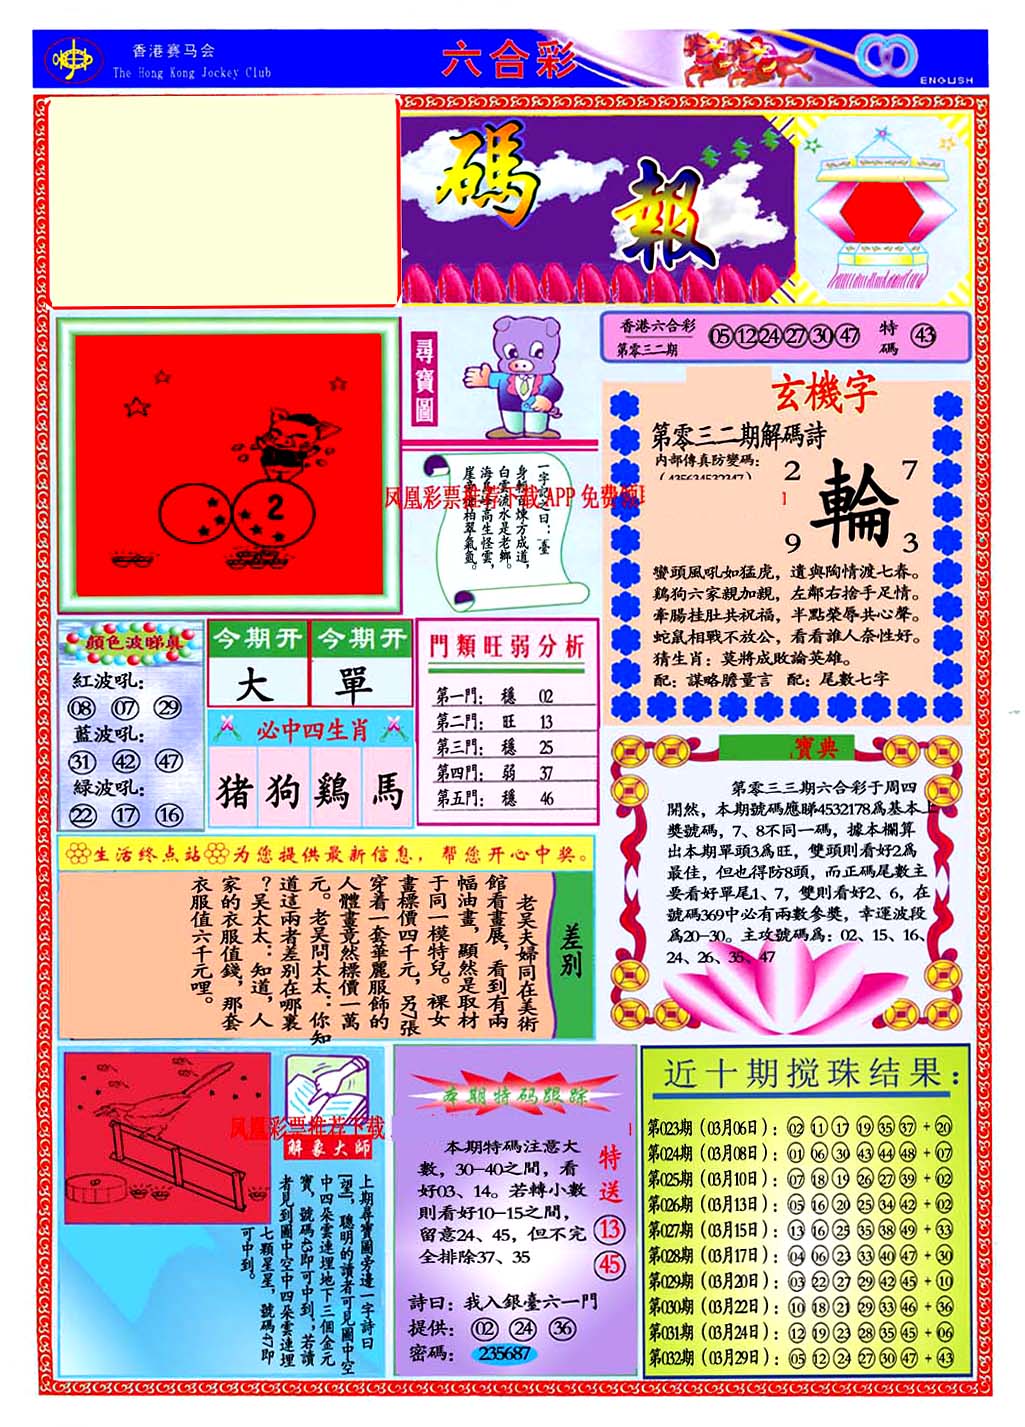 香港赛马会
The Hong Kong Jockey Club
六合彩
ENGLISH
碼報
尋寶圖
2
一字記之曰：臺
身輕百煉方成道，
白雲流水是老鄉。
凤凰彩票推荐下载 APP 免费领
香港六合彩
第零三二期
05 12 24 27 30 47
特碼
43
玄機字
第零三二期解碼詩
内部傳真防變碼：
2 7
輪
9 3
鑾頭風吼如猛虎，遺與陶情渡七春。
鷄狗六家親加親，左鄰右捨手足情。
牽腸挂肚共祝福，半點榮辱共心聲。
蛇鼠相戰不放公，看看誰人奈性好。
猜生肖：莫將成敗論英雄。
配：謀略膽量言 配：尾數七字
顔色波睇真
紅波吼：
08 07 29
藍波吼：
31 42 47
緑波吼：
22 17 16
今期开 今期开
大 單
必中四生肖
猪 狗 鷄 馬
門類旺弱分析
第一門： 穩 02
第二門： 旺 13
第三門： 穩 25
第四門： 弱 37
第五門： 穩 46
寶典
第零三三期六合彩于周四
開然，本期號碼應睇4532178爲基本上
獎號碼，7、8不同一碼，據本欄算
出本期單頭3爲旺，雙頭則看好2爲
最佳，但也得防8頭，而正碼尾數主
要看好單尾1、7，雙則看好2、6，在
號碼369中必有兩數參獎，幸運波段
爲20-30。主攻號碼爲：02、15、16、
24、26、35、47
生活终点站 为您提供最新信息，帮您开心中奖。
差别
老吴夫婦同在美術
館看畫展，看到有兩
幅油畫，顯然是取材
于同一模特兒。裸女
畫標價四千元，另7張
穿着一套華麗服飾的
人體畫竟然標價一萬
元。老吴問太太：你知
道這兩者差别在哪裏
？吴太太：知道，人
家的衣服值錢，那套
衣服值六千元哩。
凤凰彩票推荐下载
解象大師
上期尋寶圖旁邊一字詩曰
[望]，聰明的讀者可見圖中空
中四朵雲連埋地下三個金元
寶，號碼43即可中到，若讀
者見到圖中空中四朵雲連埋
七顆星星，號碼47即
可中到。
本期特码跟踪
本期特碼注意大
數，30-40之間，看
好03、14。若轉小數
則看好10-15之間，
留意24、45，但不完
全排除37、35
特送
13
45
詩曰：我入銀臺六一門
提供： 02 24 36
密碼： 235687
近十期搅珠结果：
第023期（03月06日）：02 11 17 19 35 37 + 20
第024期（03月08日）：01 06 30 43 44 48 + 07
第025期（03月10日）：07 18 19 26 27 39 + 02
第026期（03月13日）：05 16 20 25 34 42 + 02
第027期（03月15日）：13 16 25 35 38 49 + 33
第028期（03月17日）：04 06 23 33 40 47 + 30
第029期（03月20日）：03 22 27 29 42 45 + 10
第030期（03月22日）：10 18 21 29 33 46 + 36
第031期（03月24日）：12 19 23 28 35 45 + 06
第032期（03月29日）：05 12 24 27 30 47 + 43